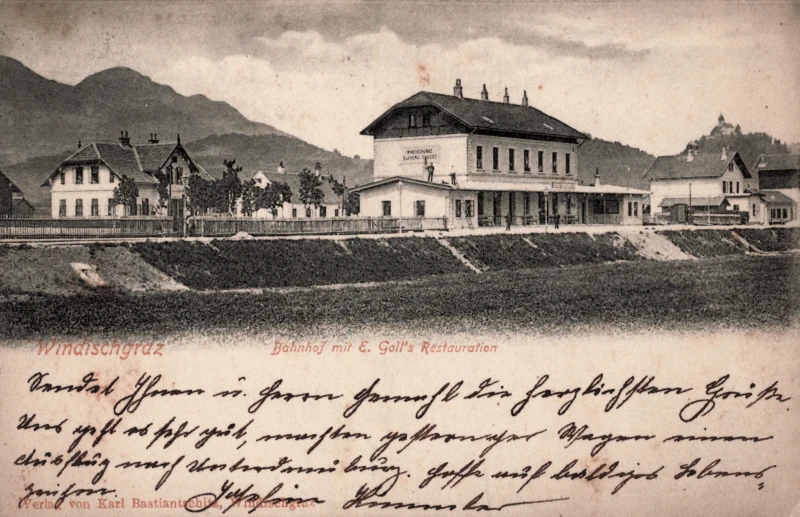 WINDISCHGRAZ
Windischgraz
Bahnhof mit E. Goll's Restauration
Sendet Ihnen u. Herrn Gemahl die herzlichsten Grüße.
Uns geht es sehr gut, machten gestern per Wagen einen
Ausflug nach Unterdrauburg. Hoffe auf baldiges Lebens-
zeichen. Josefine
Verlag von Karl Bastiantschitz, Windischgraz